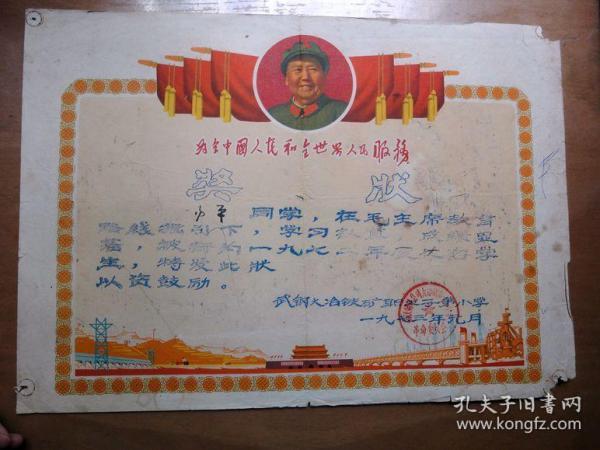 为全中國人民和全世界人民服務
奬狀
小平 同学，在毛主席教育
路线指引下，学习
被评为一九七二年度
生，特发此状
以资鼓励。
武钢大冶铁矿职工子弟小学
一九七三年元月
孔夫子旧书网
www.kongfz.com